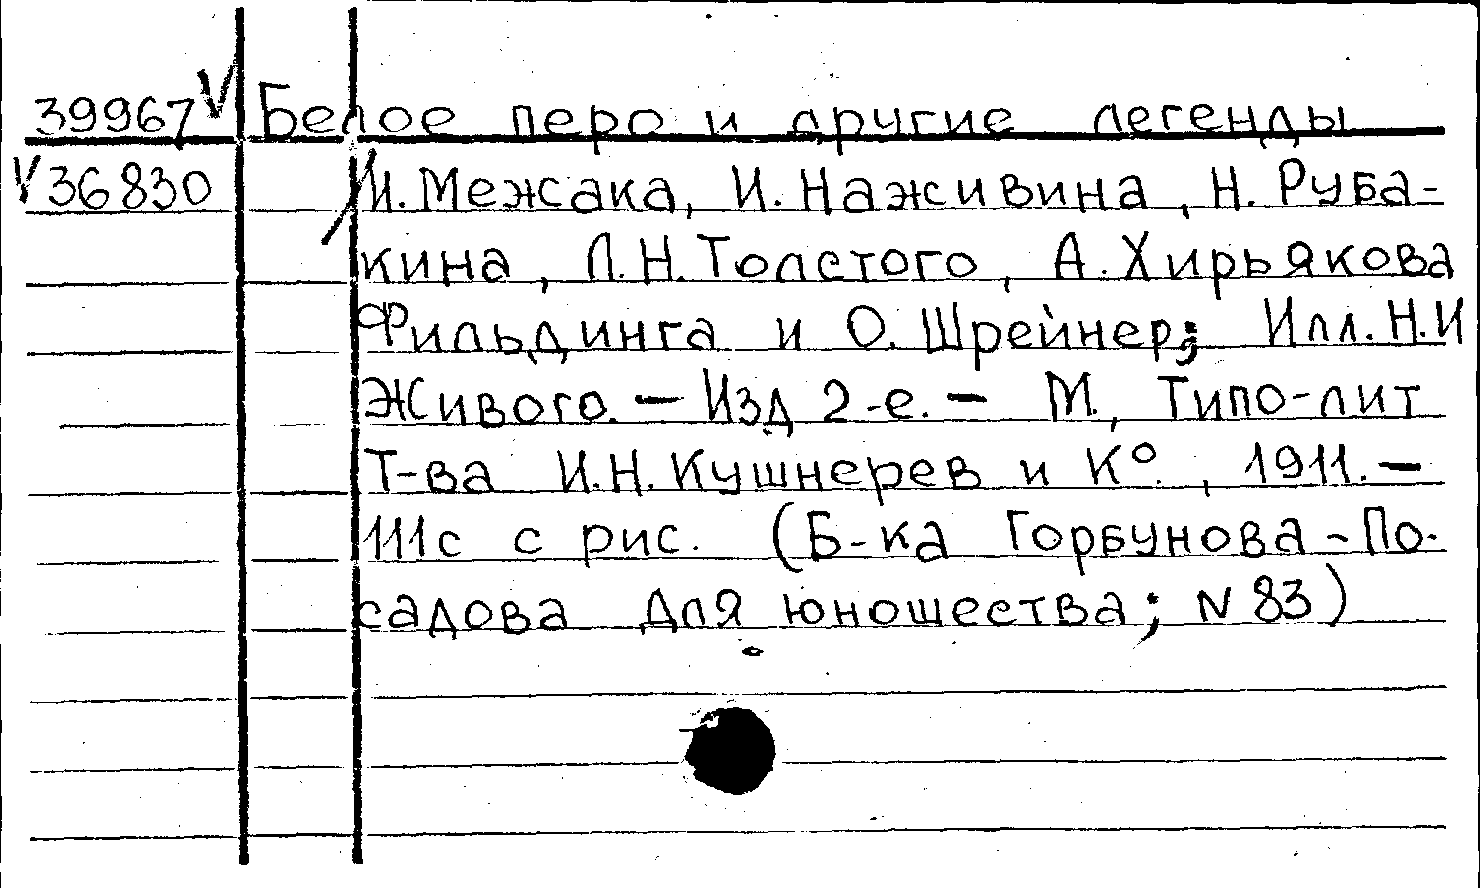 39967 V Белое перо и другие легенды
V 36830 / И. Межсака, И. Наживина, Н. Руба-
кина, Л.Н. Толстого, А. Хирьякова
Фильдинга и О. Шрейнер; Илл. Н.И
Живого. – Изд 2-е. – М., Типо-лит
Т-ва И.Н. Кушнерев и К°., 1911. –
111с с рис. (Б-ка Горбунова-По-
садова для юношества; N 83)